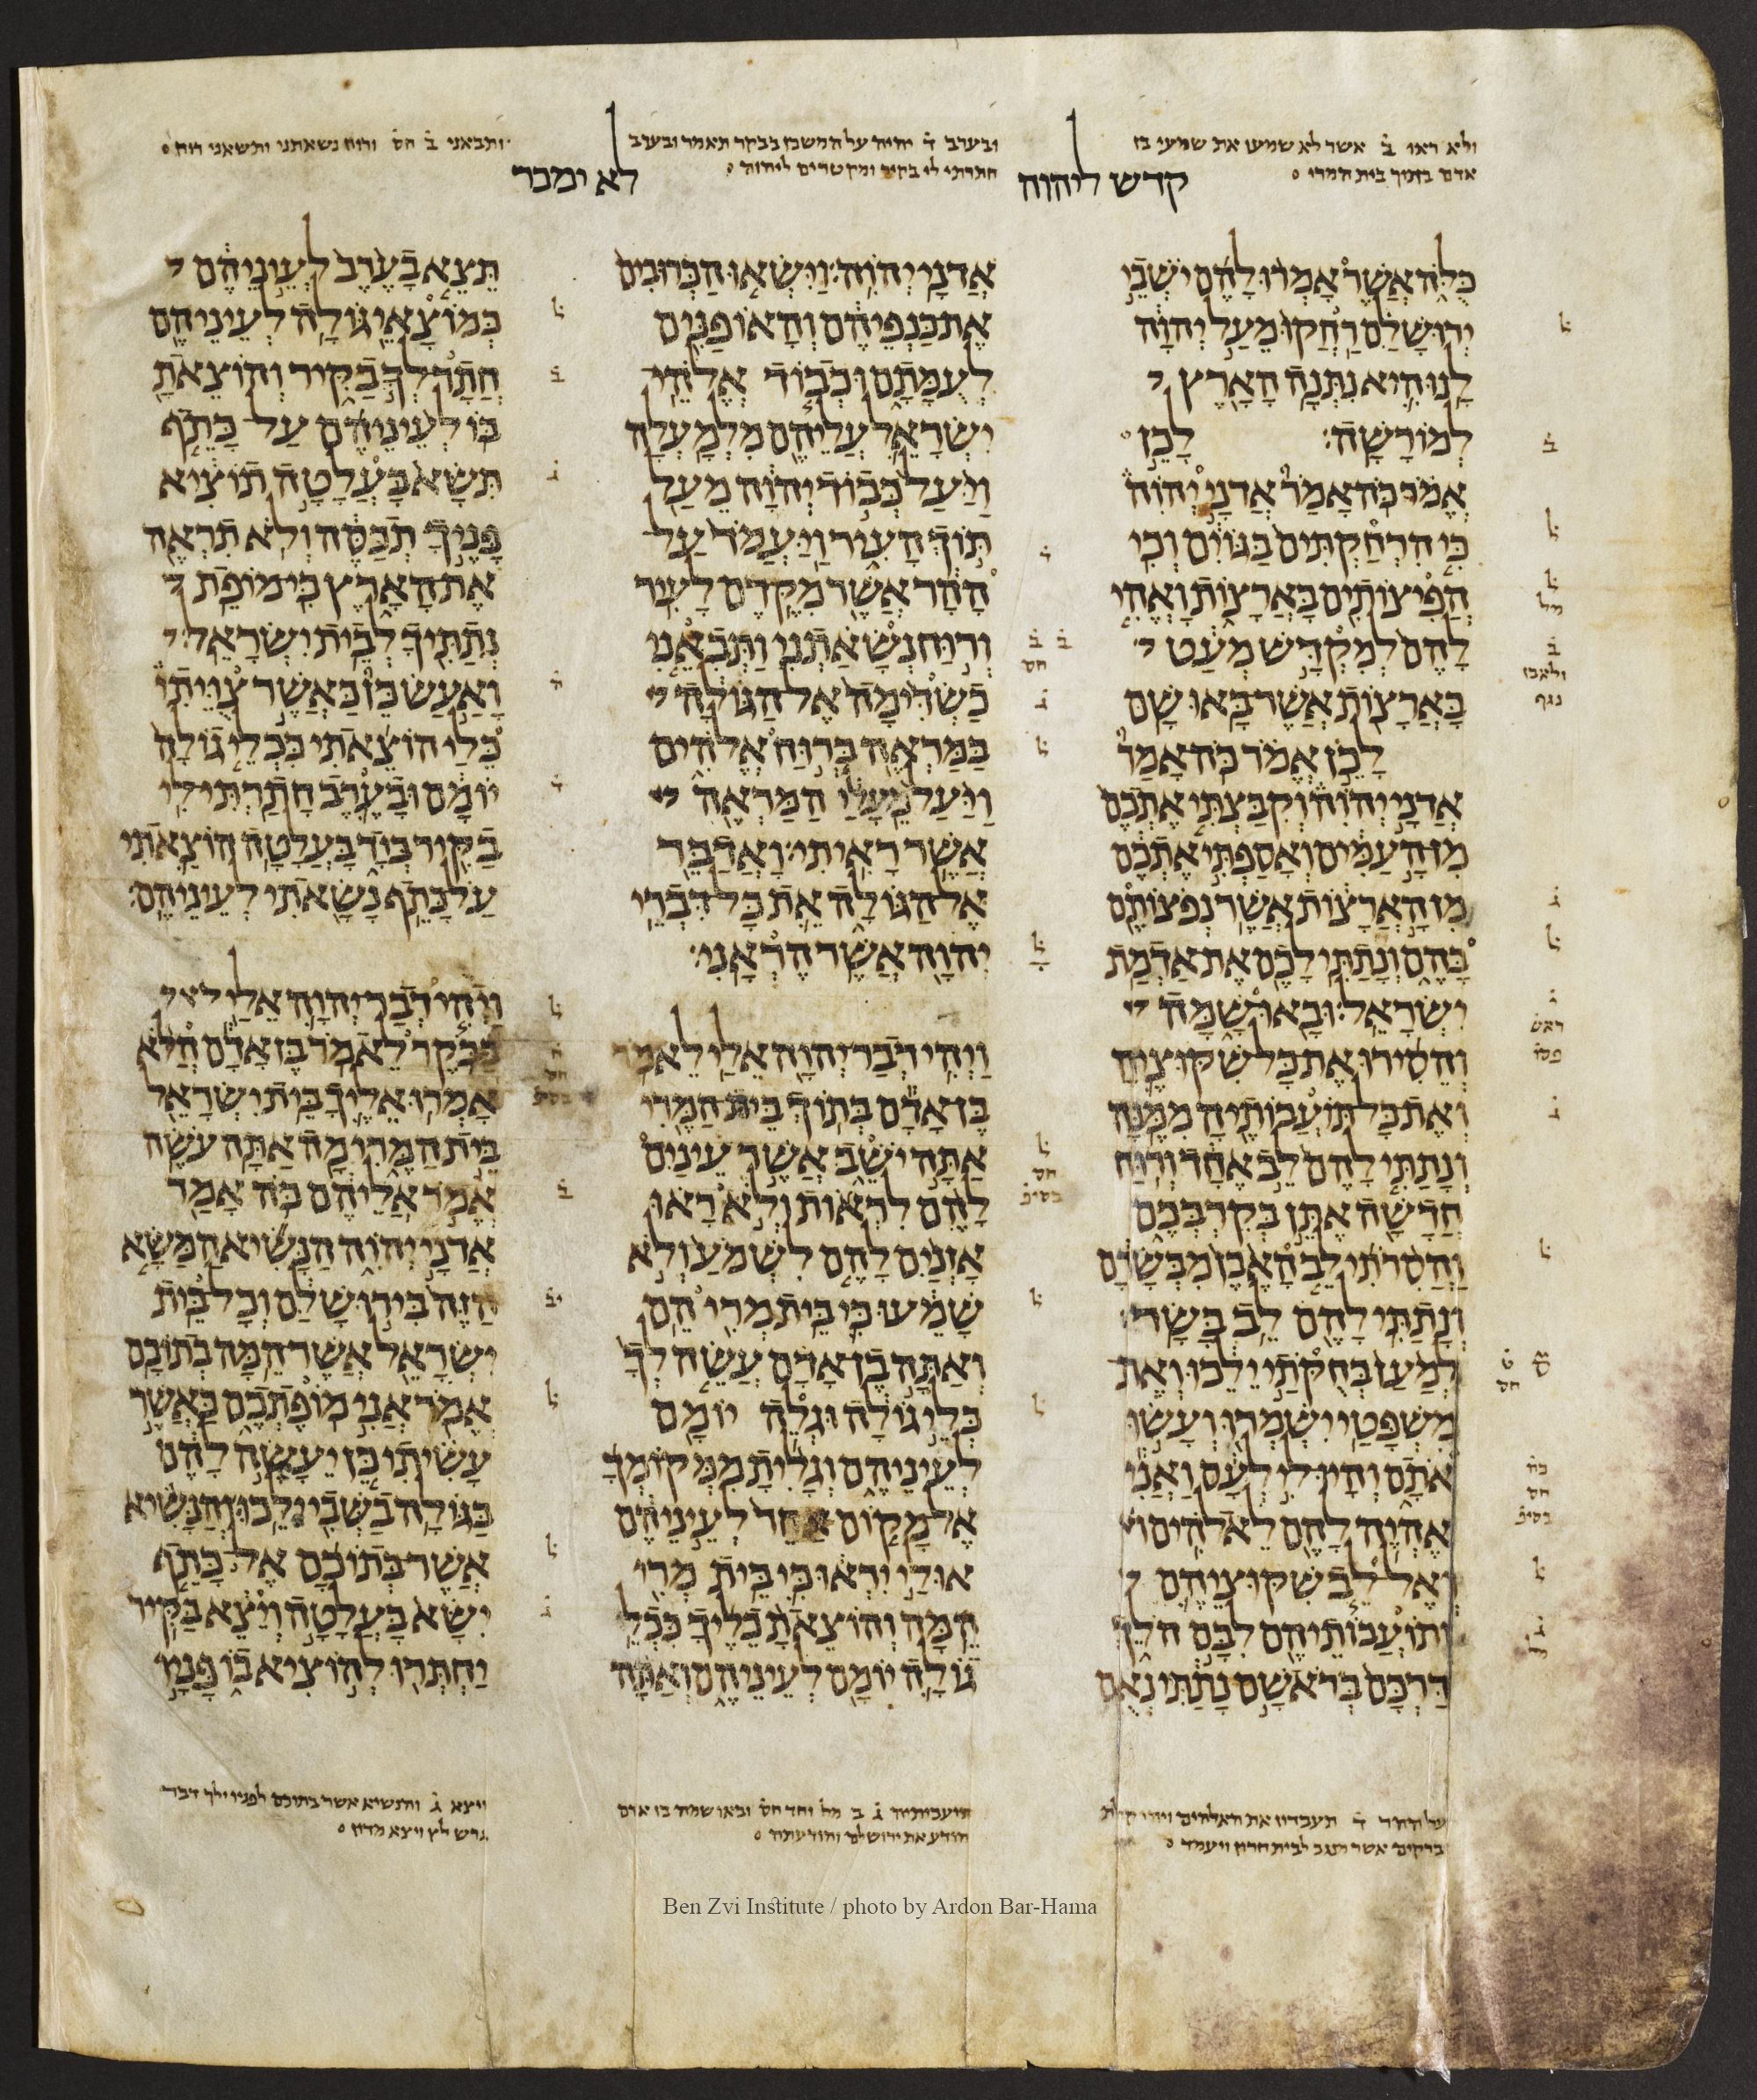 ולא ראו ב אשר לא שמעו את שמעי בן
אדם בתוך בית המרי
קדש ליהוה
ובערב ד יהיה על המשכן בבקר תאמר ובערב
חתרתי לי בקיר ומקטרים ליהוה
לא ימכר
ותבאני ב חס ורוח נשאתני ותשאני רוח
כלה אשר אמרו להם ישבי
ירושלם רחקו מעל יהוה
לנו היא נתנה הארץ
למורשה׃ לכן
אמר כה אמר אדני יהוה
כי הרחקתים בגוים וכי
הפיצותים בארצות ואהי
להם למקדש מעט
בארצות אשר באו שם
לכן אמר כה אמר
אדני יהוה וקבצתי אתכם
מן העמים ואספתי אתכם
מן הארצות אשר נפצותם
בהם ונתתי לכם את אדמת
ישראל׃ ובאו שמה
והסירו את כל שקוציה
ואת כל תועבותיה ממנה
ונתתי להם לב אחד ורוח
חדשה אתן בקרבכם
והסרתי לב האבן מבשרם
ונתתי להם לב בשר׃
למען בחקתי ילכו ואת
משפטי ישמרו ועשו
אתם והיו לי לעם ואני
אהיה להם לאלהים׃
ואל לב שקוציהם
ותועבותיהם לבם הלך
דרכם בראשם נתתי נאם
אדני יהוה׃ וישאו הכרובים
את כנפיהם והאופנים
לעמתם וכבוד אלהי
ישראל עליהם מלמעלה
ויעל כבוד יהוה מעל
תוך העיר ויעמד על
ההר אשר מקדם לעיר
ורוח נשאתני ותבאני
כשדימה אל הגולה
במראה ברוח אלהים
ויעל מעלי המראה
אשר ראיתי׃ ואדבר
אל הגולה את כל דברי
יהוה אשר הראני׃
ויהי דבר יהוה אלי לאמר
בן אדם בתוך בית המרי
אתה ישב אשר עינים
להם לראות ולא ראו
אזנים להם לשמע ולא
שמעו כי בית מרי הם
ואתה בן אדם עשה לך
כלי גולה וגלה יומם
לעיניהם וגלית ממקומך
אל מקום אחר לעיניהם
אולי יראו כי בית מרי
המה והוצאת כליך ככלי
גולה יומם לעיניהם ואתה
תצא בערב לעיניהם
כמוצאי גולה לעיניהם
חתר לך בקיר והוצאת
בו לעיניהם על כתף
תשא בעלטה תוציא
פניך תכסה ולא תראה
את הארץ כי מופת
נתתיך לבית ישראל׃
ואעש כן כאשר צויתי
כלי הוצאתי ככלי גולה
יומם ובערב חתרתי לי
בקיר ביד בעלטה הוצאתי
על כתף נשאתי לעיניהם׃
ויהי דבר יהוה אלי
בבקר לאמר בן אדם הלא
אמרו אליך בית ישראל
בית המרי מה אתה עשה
אמר אליהם כה אמר
אדני יהוה הנשיא המשא
הזה בירושלם וכל בית
ישראל אשר המה בתוכם
אמר אני מופתכם כאשר
עשיתי כן יעשה להם
בגולה בשבי ילכו׃ והנשיא
אשר בתוכם אל כתף
ישא בעלטה ויצא בקיר
יחתרו להוציא בו פניו
על ההר ד תעבדון את האלהים ויהי
אשר מנגב לבית חרון ויעמד
תועבותיה ג ב מל וחד חס ובאו שמה בן אדם
הודע את ירושלם והודעתה
ויצא ג והנשיא אשר בתוכם לפניו ילך דבר
גרש לץ ויצא מדון
Ben Zvi Institute / photo by Ardon Bar-Hama